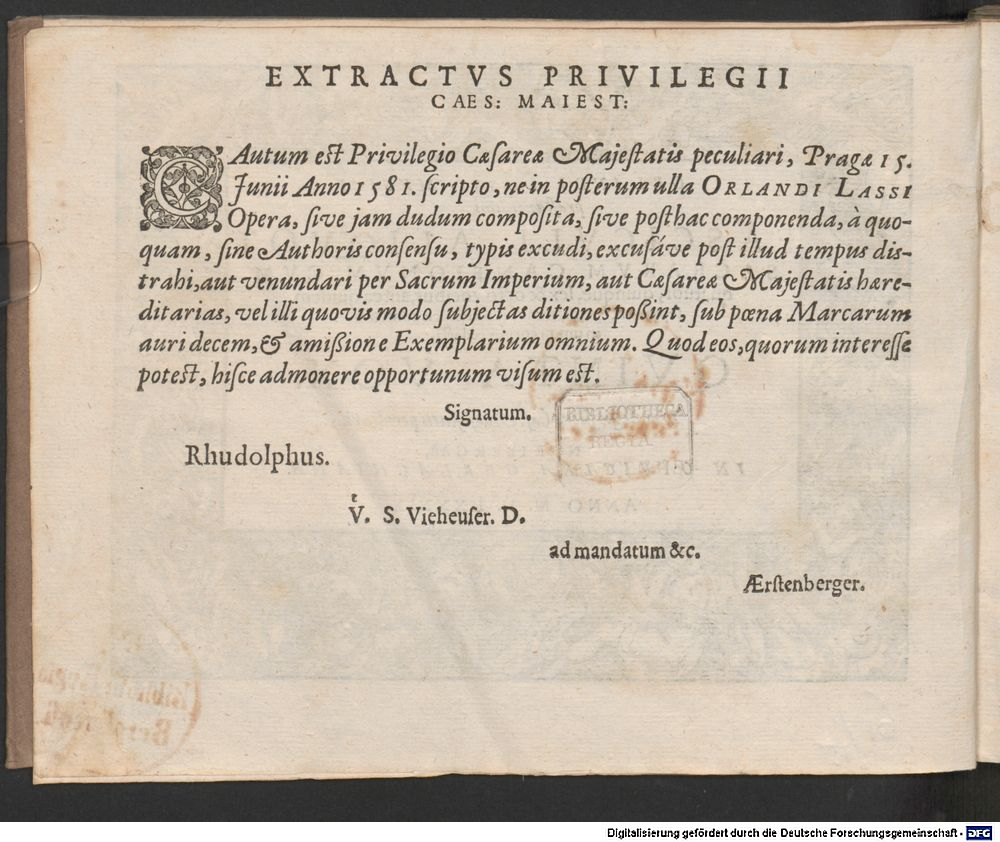 EXTRACTVS PRIVILEGII
CAES: MAIEST:
CAutum est Privilegio Cæsareæ Majestatis peculiari, Pragæ 15.
Junii Anno 1581. scripto, ne in posterum ulla ORLANDI LASSI
Opera, sive jam dudum composita, sive posthac componenda, à quo-
quam, sine Authoris consensu, typis excudi, excusáve post illud tempus dis-
trahi, aut venundari per Sacrum Imperium, aut Cæsareæ Majestatis hære-
ditarias, vel illi quovis modo subjectas ditiones poßint, sub pœna Marcarum
auri decem, & amißione Exemplarium omnium. Quod eos, quorum interesse
potest, hisce admonere opportunum visum est.
Signatum.
Rhudolphus.
Vͤ. S. Vieheuser. D.
ad mandatum &c.
Ærstenberger.
BIBLIOTHECA
REGIA
Digitalisierung gefördert durch die Deutsche Forschungsgemeinschaft - DFG